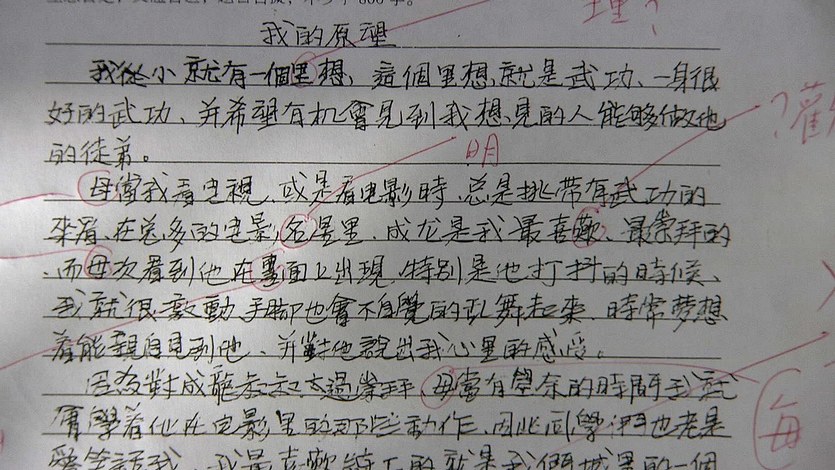 理?
我的原理
我從小就有一個里想，這個里想就是武功、一身很
好的武功、并希望有机會見到我想見的人能够做他
的徒弟。
明
母當我看电視，或是看电影時、总是挑带有武功的
來看、在总多的电影名星里、成龙是我最喜歡、最崇拜的
、而母次看到他在畫面上出現，特别是他打抖的時候、
我就很敫動、手脚也會不自覺的乱舞起來、時常梦想
着能親自見到他、并對他說出我心里的感受。
因为對成龍叔叔太過崇拜、母當有空余的時間我就
會學着他在电影里的那些動作、因此同學們也老是
每
愛笑話我、我最喜歡的就是我們城里的一個